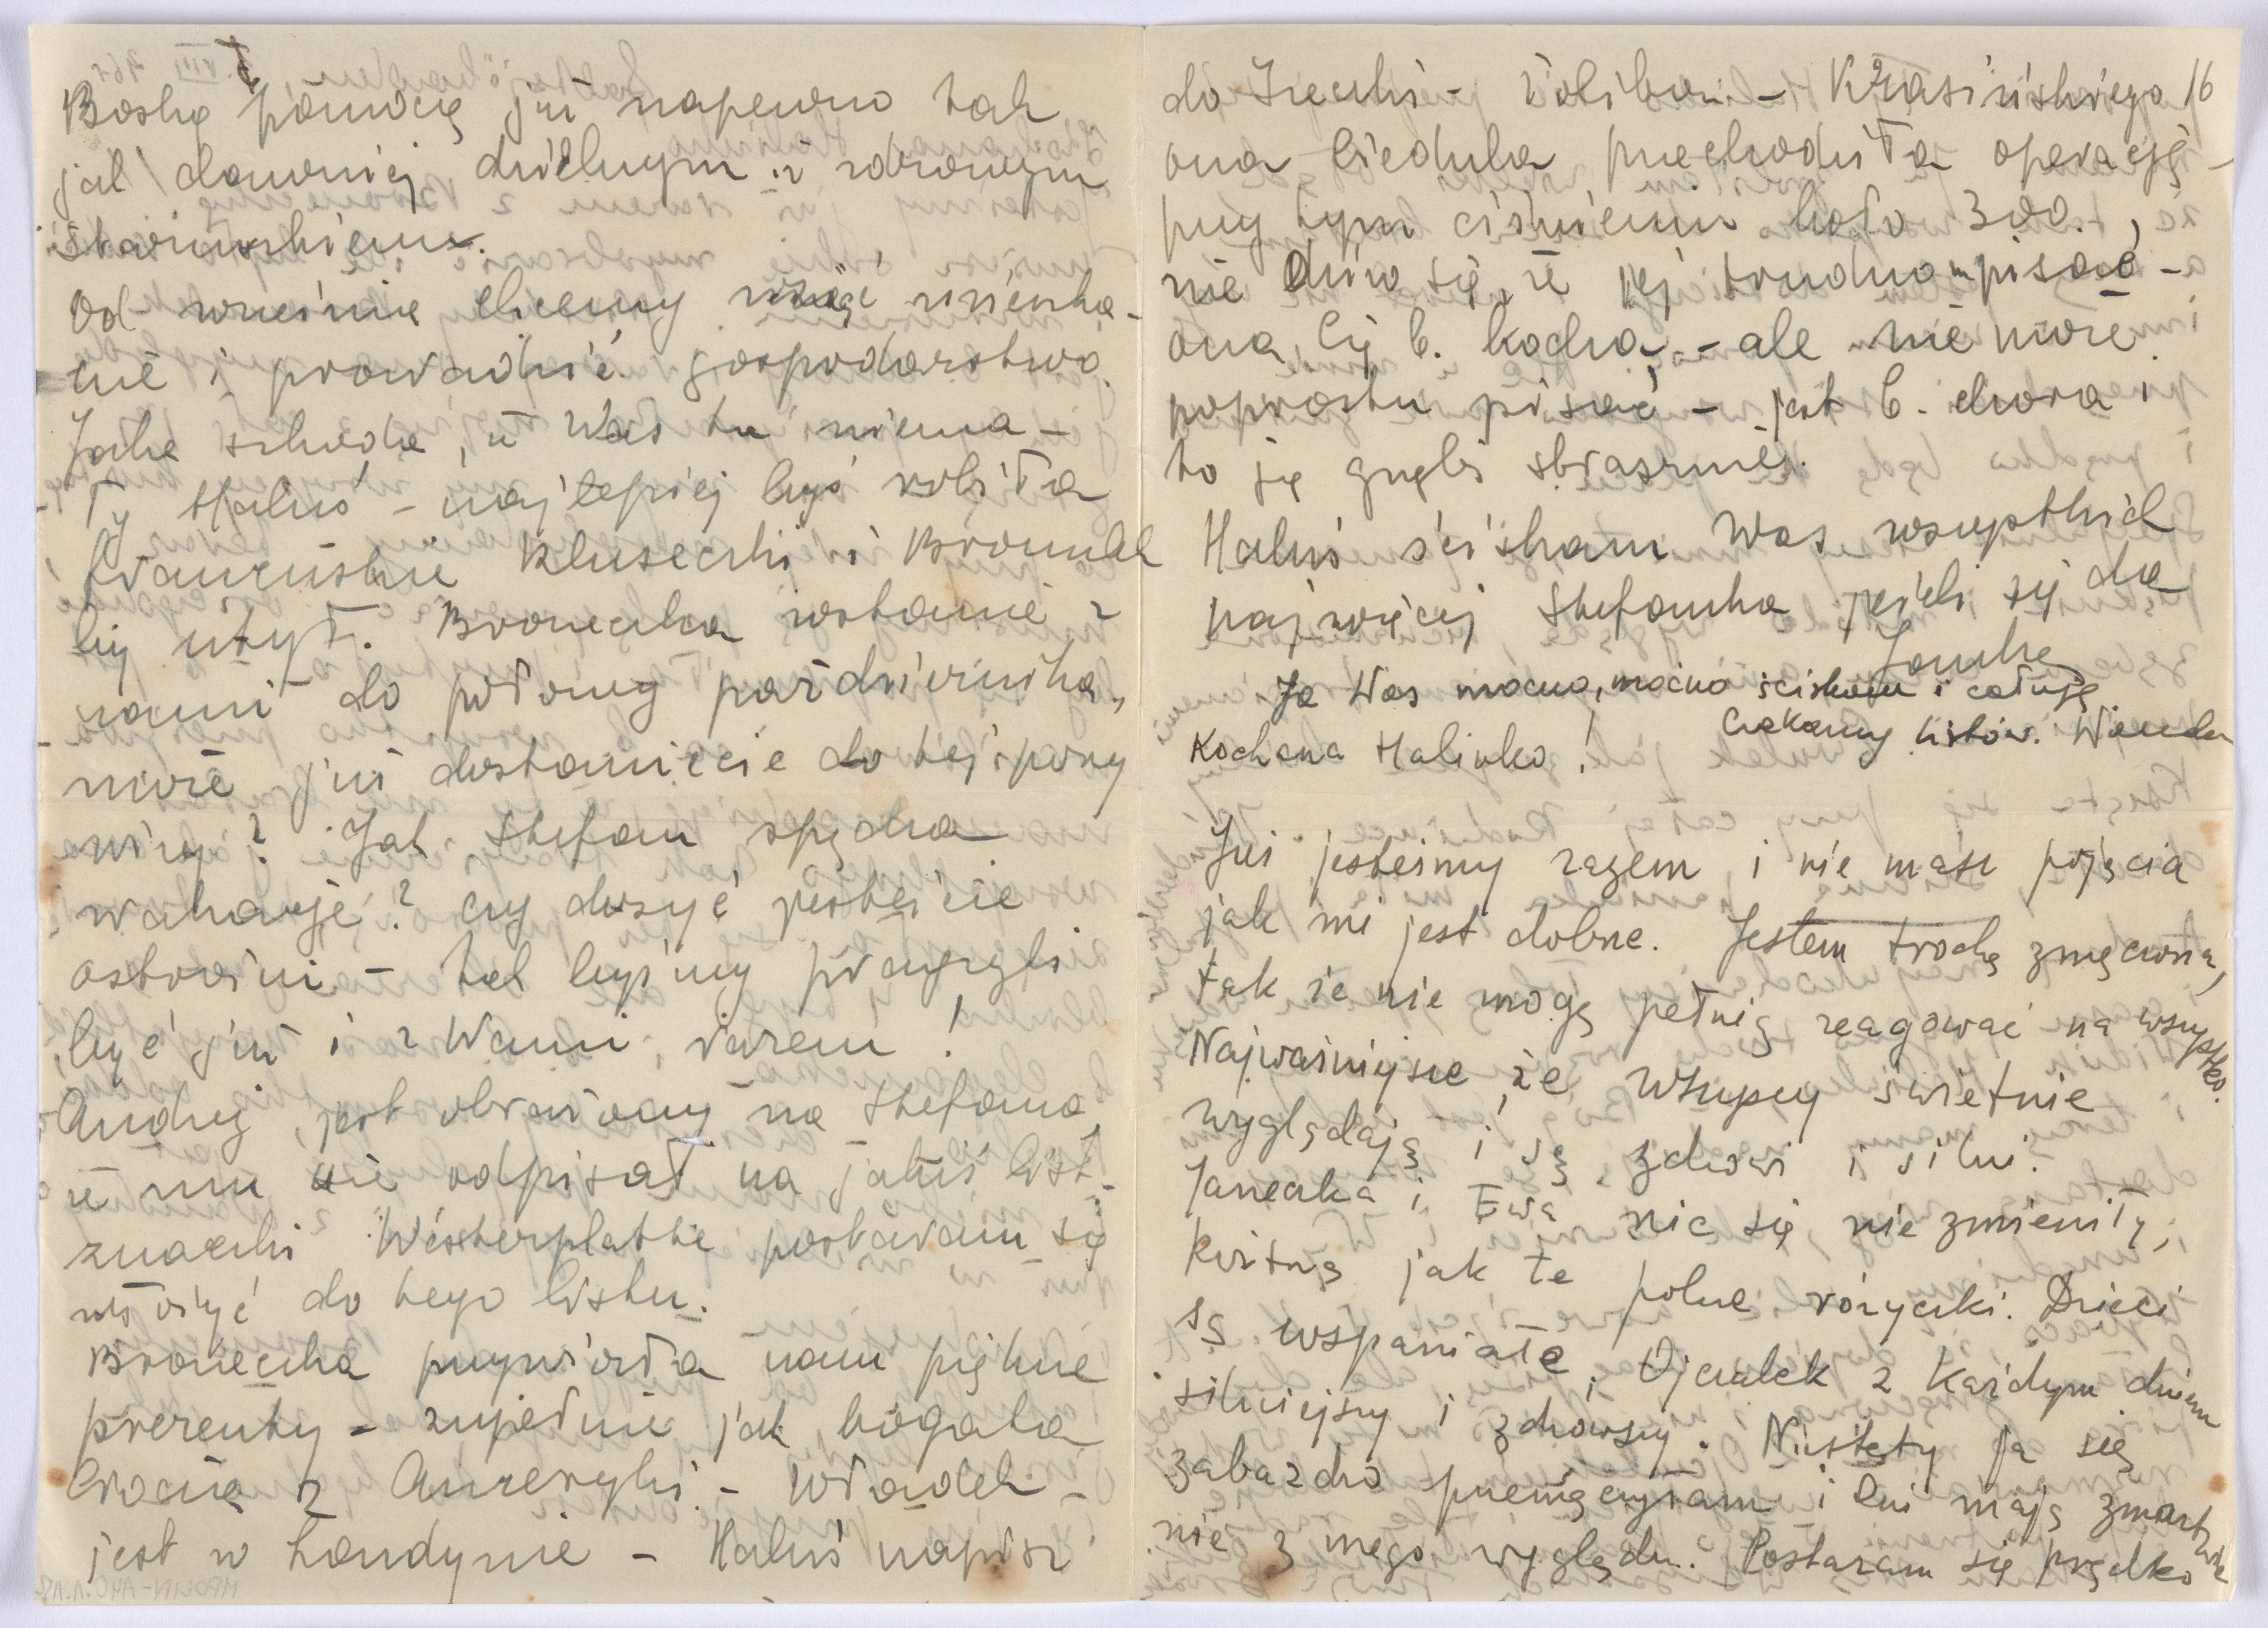 Boską pomocą już napewno tak
jak dawniej dzielnym i zdrowym
Od września chcemy wziąć mieszka-
nie i prowadzić gospodarstwo.
Jaka szkoda, że Was tu niema –
Ty Haluś – najlepiej byś robiła
francuskie kluseczki i Bronulek
by użył. Broneczka zostanie z
nami do połowy października,
może już dostaniecie do tej pory
wizy? Jak Stefan spędza
wakacje? czy dosyć jesteście
ostrożni – tak byśmy pragnęli
być już i z Wami razem!
Andrzej jest obrażony na Stefana,
że mu nie odpisał na jakiś list –
znaczki Westerplatte postaram się
włożyć do tego listu.
Broneczka przywiozła nam piękne
prezenty – zupełnie jak bogata
ciocia z Ameryki – Władek –
jest w Londynie – Haluś napisz
do Irenki – Żolibor – Krasińskiego 16
ona biedulka przechodziła operację –
przy tym ciśnieniu koło 300.,
nie dziw się, że jej trudno pisać –
ona Cię b. kocha – ale nie może
poprostu pisać – jest b. chora i
to ją gnębi strasznie.
Haluś ściskam Was wszystkich
najwięcej Stefanka jeżeli się da
Janka
Ja Was mocno, mocno ściskam i całuję
Czekamy listów. Wanda
Kochana Halinko!
Już jesteśmy razem i nie masz pojęcia
jak mi jest dobrze. Jestem trochę zmęczona,
tak że nie mogę pełnią reagować na wszystko.
Najważniejsze, że wszyscy świetnie
wyglądają i są zdrowi i silni.
Janeczka i Ewa nic się nie zmieniły,
kwitną jak te polne różyczki. Dzieci
są wspaniałe, Ojczulek z każdym dniem
silniejszy i zdrowszy. Niestety ja się
zabardzo przemęczyłam i Oni mają zmartwie
nie z mego wyglądu. Postaram się prędko